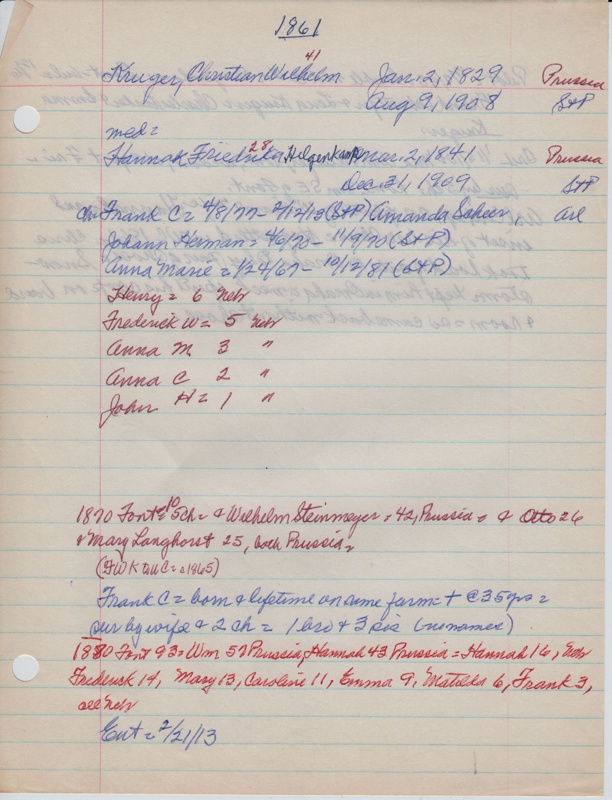 1861
41
Kruger, Christian Wilhelm Jan. 2, 1829 Prussia
Aug 9, 1908 StP
med =
28
Hannah Friedrika Helgenkamp Mar. 2, 1841 Prussia
Dec. 31, 1909 StP
ch = Frank C = 4/8/77 - 2/12/13 (StP) Amanda Scheer, Arl
Johann Herman = 4/6/70 - 11/9/70 (StP)
Anna Marie = 1/24/67 - 10/12/81 (StP)
Henry = 6 Neb
Frederick W = 5 Neb
Anna M 3 "
Anna C 2 "
John H = 1 "
1870 Font = 10 5ch = & Wilhelm Steinmeyer = 42, Prussia = & Otto 26
& Mary Langhorst 25, both Prussia =
Frank C = born & lifetime on same farm = + @ 35 yrs =
sur by wife & 2 ch = 1 bro & 3 sis (no names)
1880 Font 93 = Wm 57 Prussia, Hannah 43 Prussia = Hannah 16, Neb
Frederick 14, Mary 13, Caroline 11, Emma 9, Matilda 6, Frank 3,
all Neb
Ent = 2/21/13